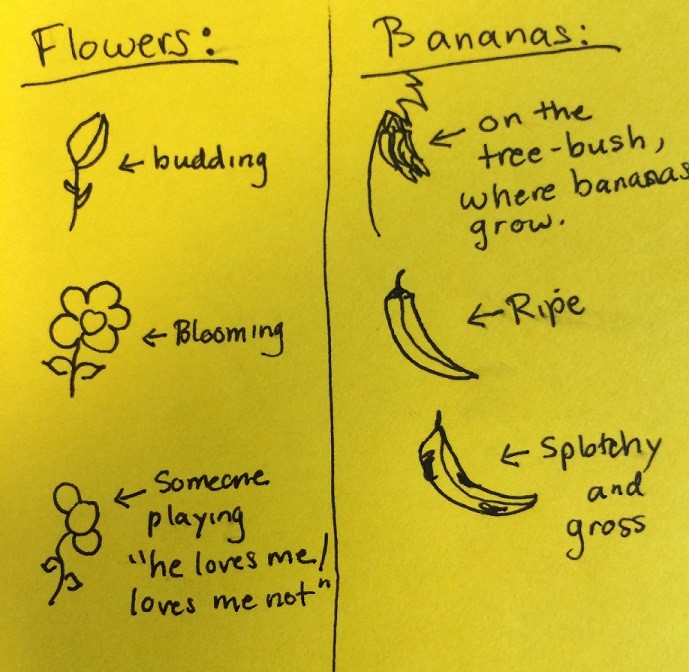 Flowers:
← budding
← Blooming
← Someone
playing
"he loves me/
loves me not"
Bananas:
← on the
tree-bush,
where bananas
grow.
← Ripe
← Splotchy
and
gross